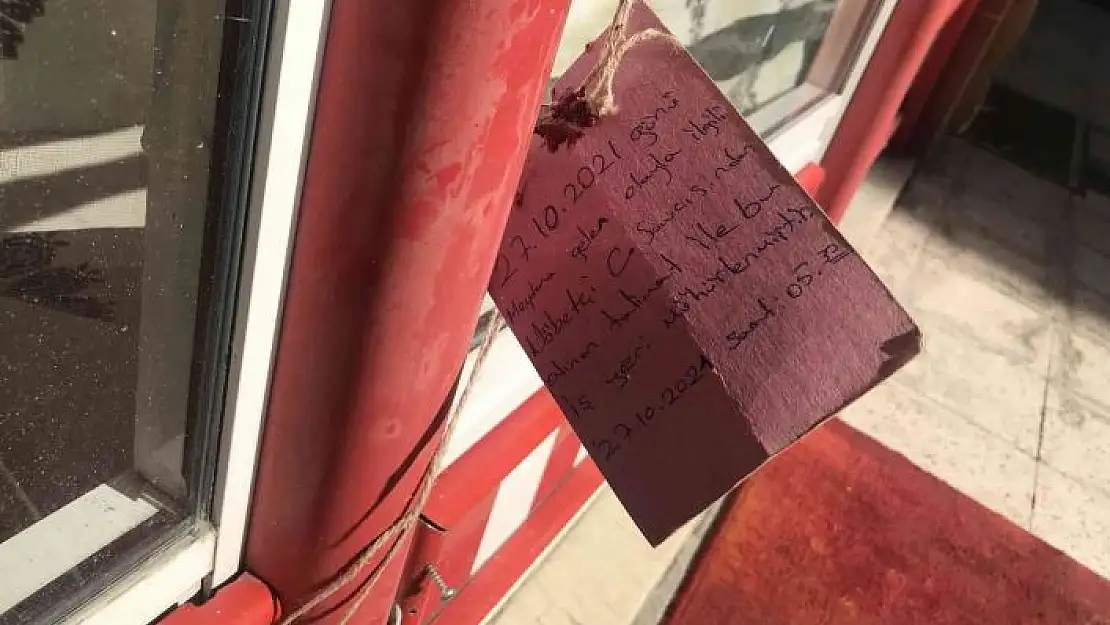 27.10.2021 günü
Meydana gelen olayla ilgili
Nöbetçi C. Savcısından
alınan talimat ile bu
iş yeri mühürlenmiştir
27.10.2021 saat: 05.30